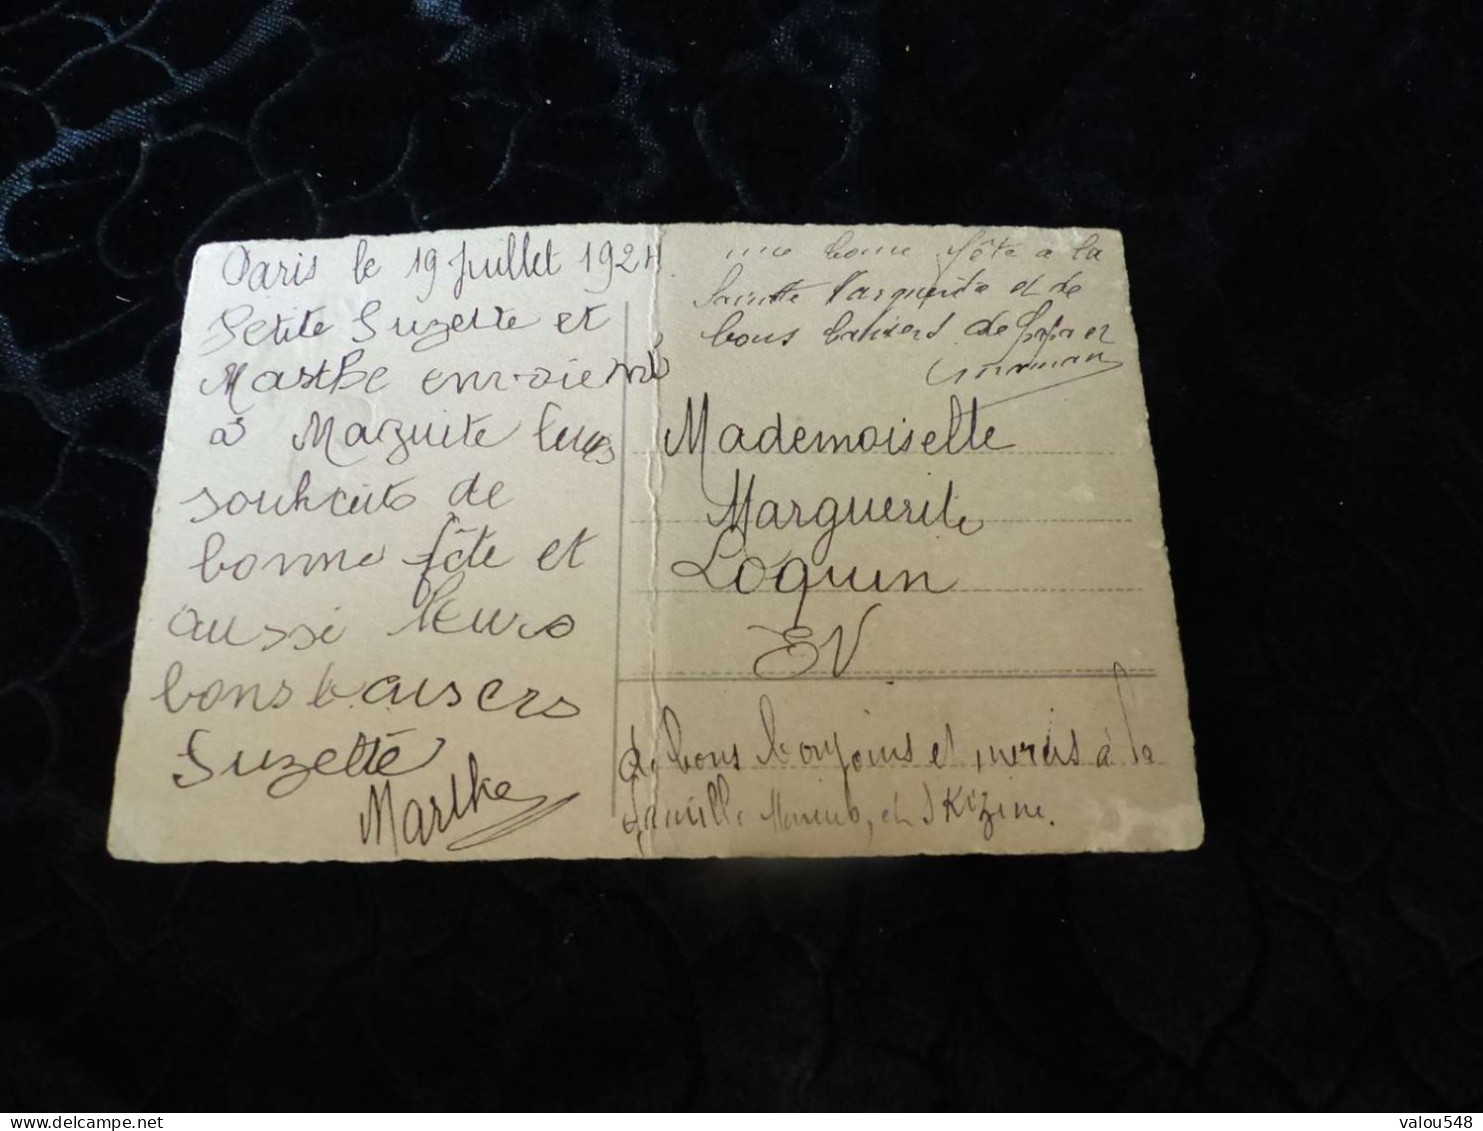 Paris le 19 Juillet 1924
Petite Suzette et
Marthe envoient
à Marguite leurs
souhaits de
bonne fête et
aussi leurs
bons baisers
Suzette
Marthe
une bonne fête a la
Sainte Marguerite et de
bons baisers de papa et
maman
Mademoiselle
Marguerite
Loquin
EV
de bons et à la
famille et
valou548